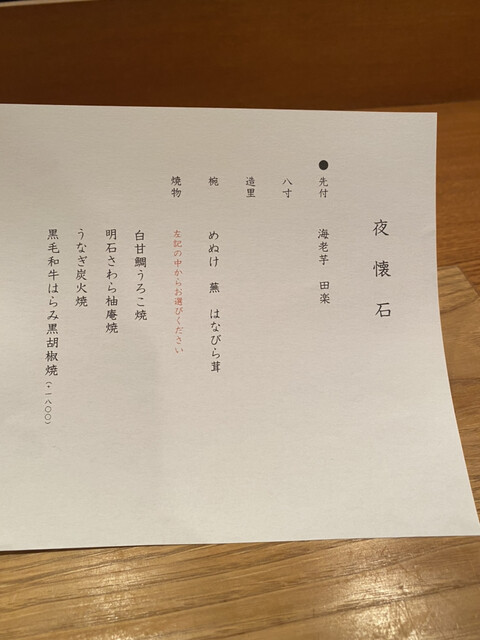 夜懐石
●先付 海老芋 田楽
八寸
造里
椀 めぬけ 蕪 はなびら茸
焼物 左記の中からお選びください
白甘鯛うろこ焼
明石さわら柚庵焼
うなぎ炭火焼
黒毛和牛はらみ黒胡椒焼(・一八〇〇)